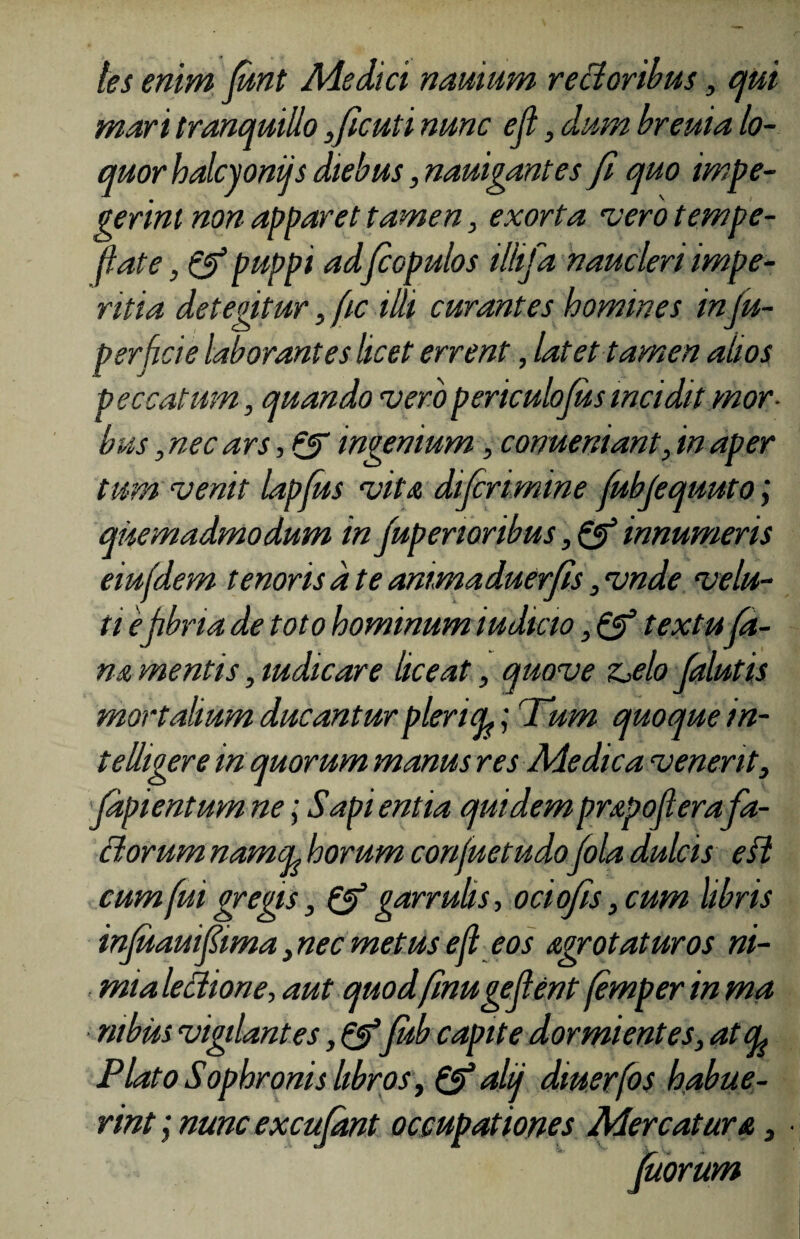 les enim ſunt Medici nauium rectoribus, qui
mari tranquillo, ſicuti nunc eſt, dum breuia lo-
quor halcyonijs diebus, nauigantes ſi quo impe-
gerint non apparet tamen, exorta vero tempe-
ſtate, & puppi ad ſcopulos illiſa naucleri impe-
ritia detegitur, ſic illi curantes homines in ſu-
perficie laborantes licet errent, latet tamen alios
peccatum, quando verò periculoſus incidit mor-
bus, nec ars, & ingenium, conueniant, in aper
tum venit lapſus vitæ diſcrimine ſubſequuto;
quemadmodum in ſuperioribus, & innumeris
eiuſdem tenoris à te animaduerſis, vnde velu-
ti è fibria de toto hominum iudicio, & textu ſa-
næ mentis, iudicare liceat, quove zelo ſalutis
mortalium ducantur pleriq;; Tum quoque in-
telligere in quorum manus res Medica venerit,
ſapientum ne; Sapientia quidem præpoſtera fa-
ctorum namq; horum conſuetudo ſola dulcis eſt
cum ſui gregis, & garrulis, ocioſis, cum libris
inſuauiſsima, nec metus eſt eos ægrotaturos ni-
mia lectione, aut quod ſinu geſtent ſemper in ma
nibus vigilantes, & ſub capite dormientes, atq;
Plato Sophronis libros, & alij diuerſos habue-
rint; nunc excuſant occupationes Mercaturæ,
ſuorum